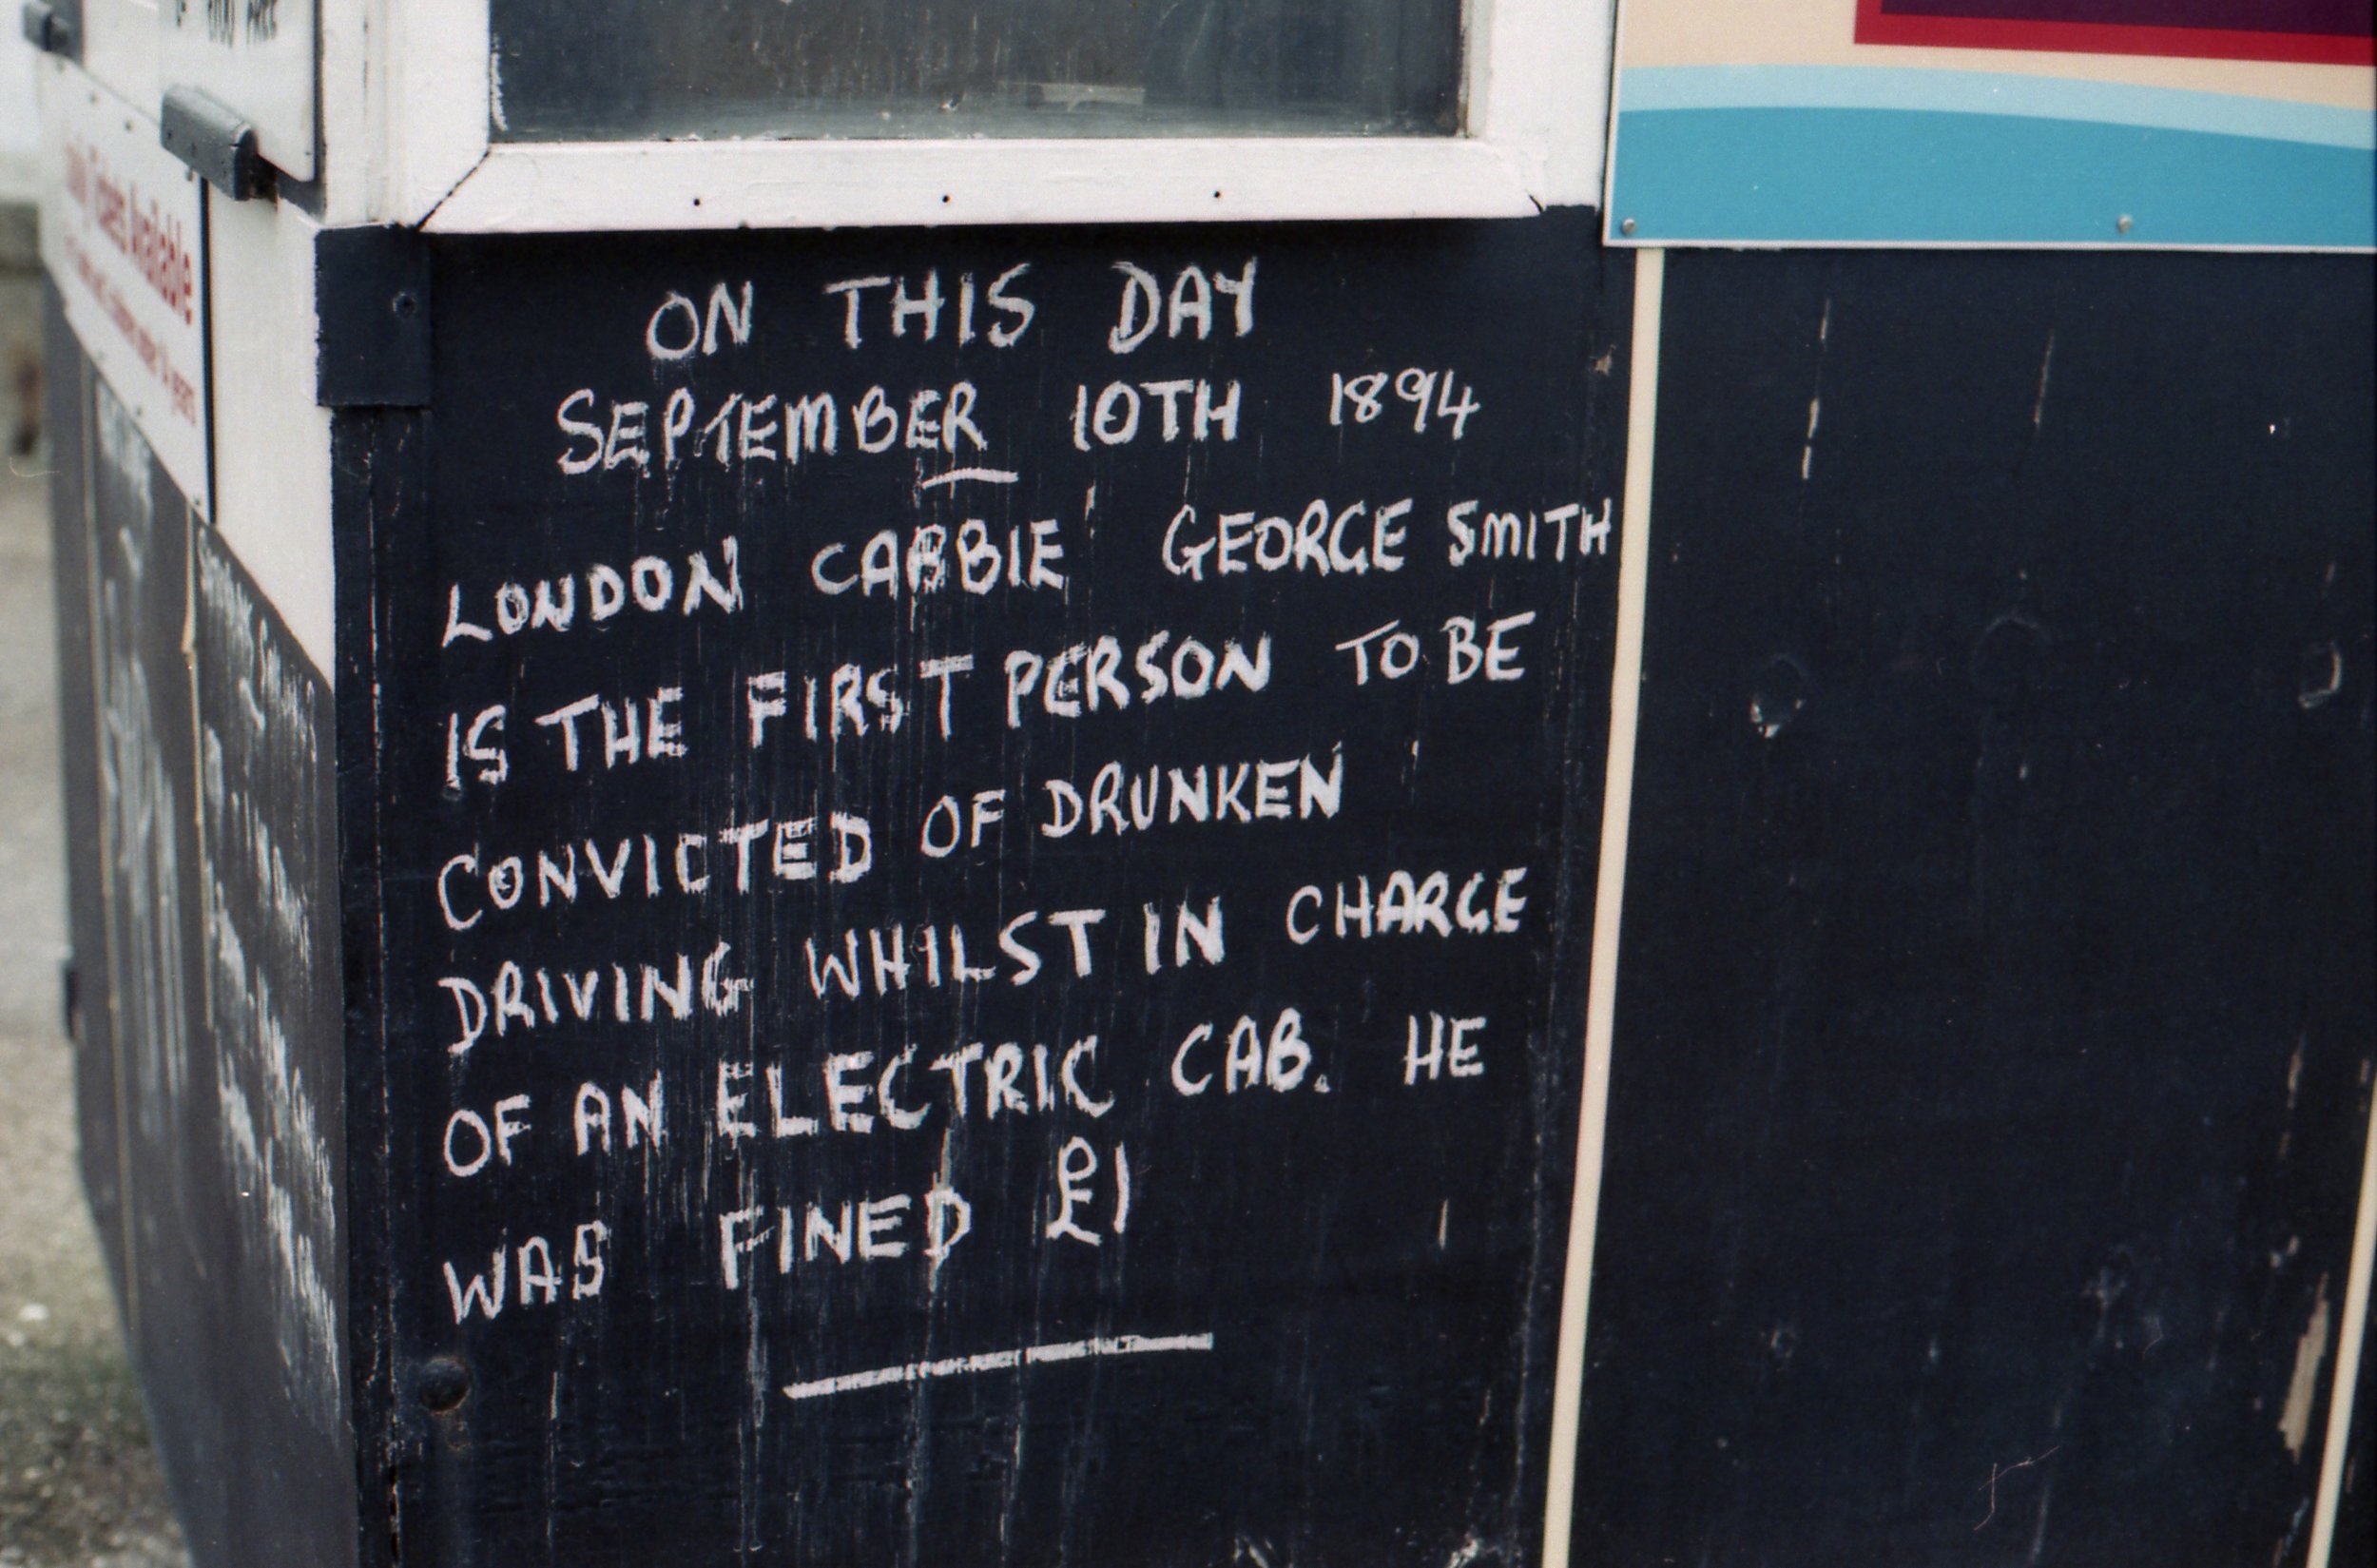 Tickets Available
years
ON THIS DAY
SEPTEMBER 10TH 1894
LONDON CABBIE GEORGE SMITH
IS THE FIRST PERSON TO BE
CONVICTED OF DRUNKEN
DRIVING WHILST IN CHARGE
OF AN ELECTRIC CAB. HE
WAS FINED £1